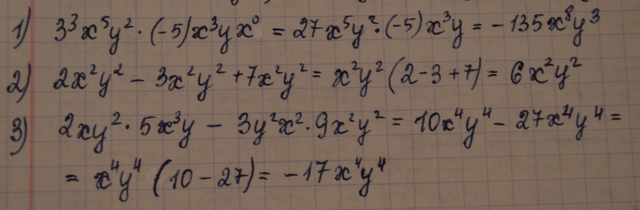 1) 3³x⁵y²·(-5)x³yx⁰ = 27x⁵y²·(-5)x³y = -135x⁸y³
2) 2x²y² - 3x²y² + 7x²y² = x²y²(2-3+7) = 6x²y²
3) 2xy²·5x³y - 3y²x²·9x²y² = 10x⁴y⁴ - 27x⁴y⁴ =
= x⁴y⁴ (10-27) = -17x⁴y⁴